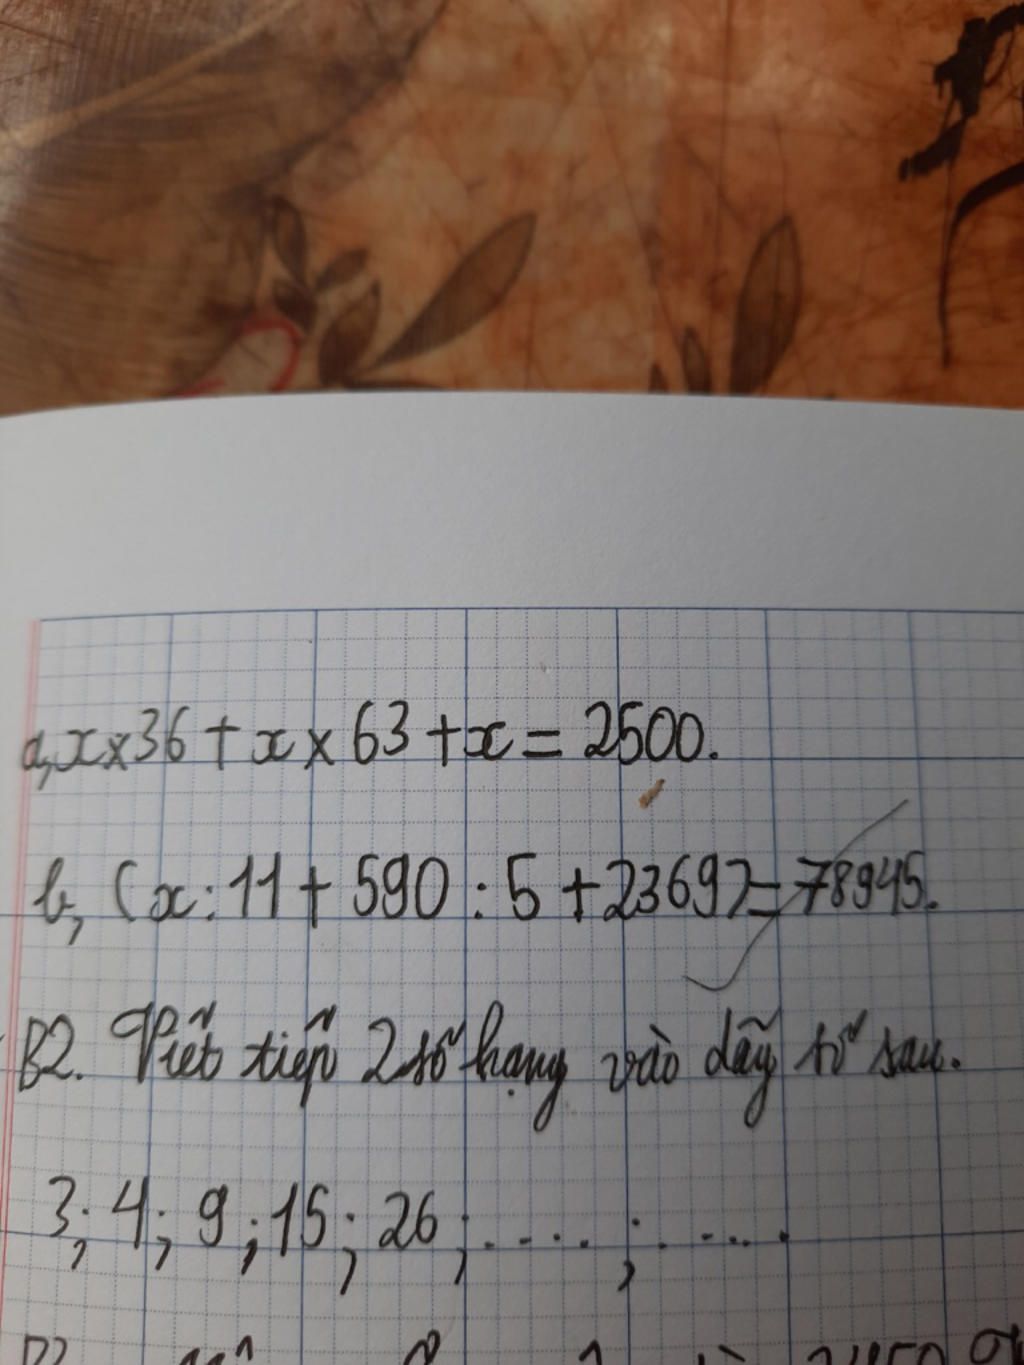 a, x x 36 + x x 63 + x = 2500.
b, (x : 11 + 590 : 5 + 2369) = 78945.
B2. Viết tiếp 2 số hạng vào dãy số sau.
3; 4; 9; 15; 26; ....; .....